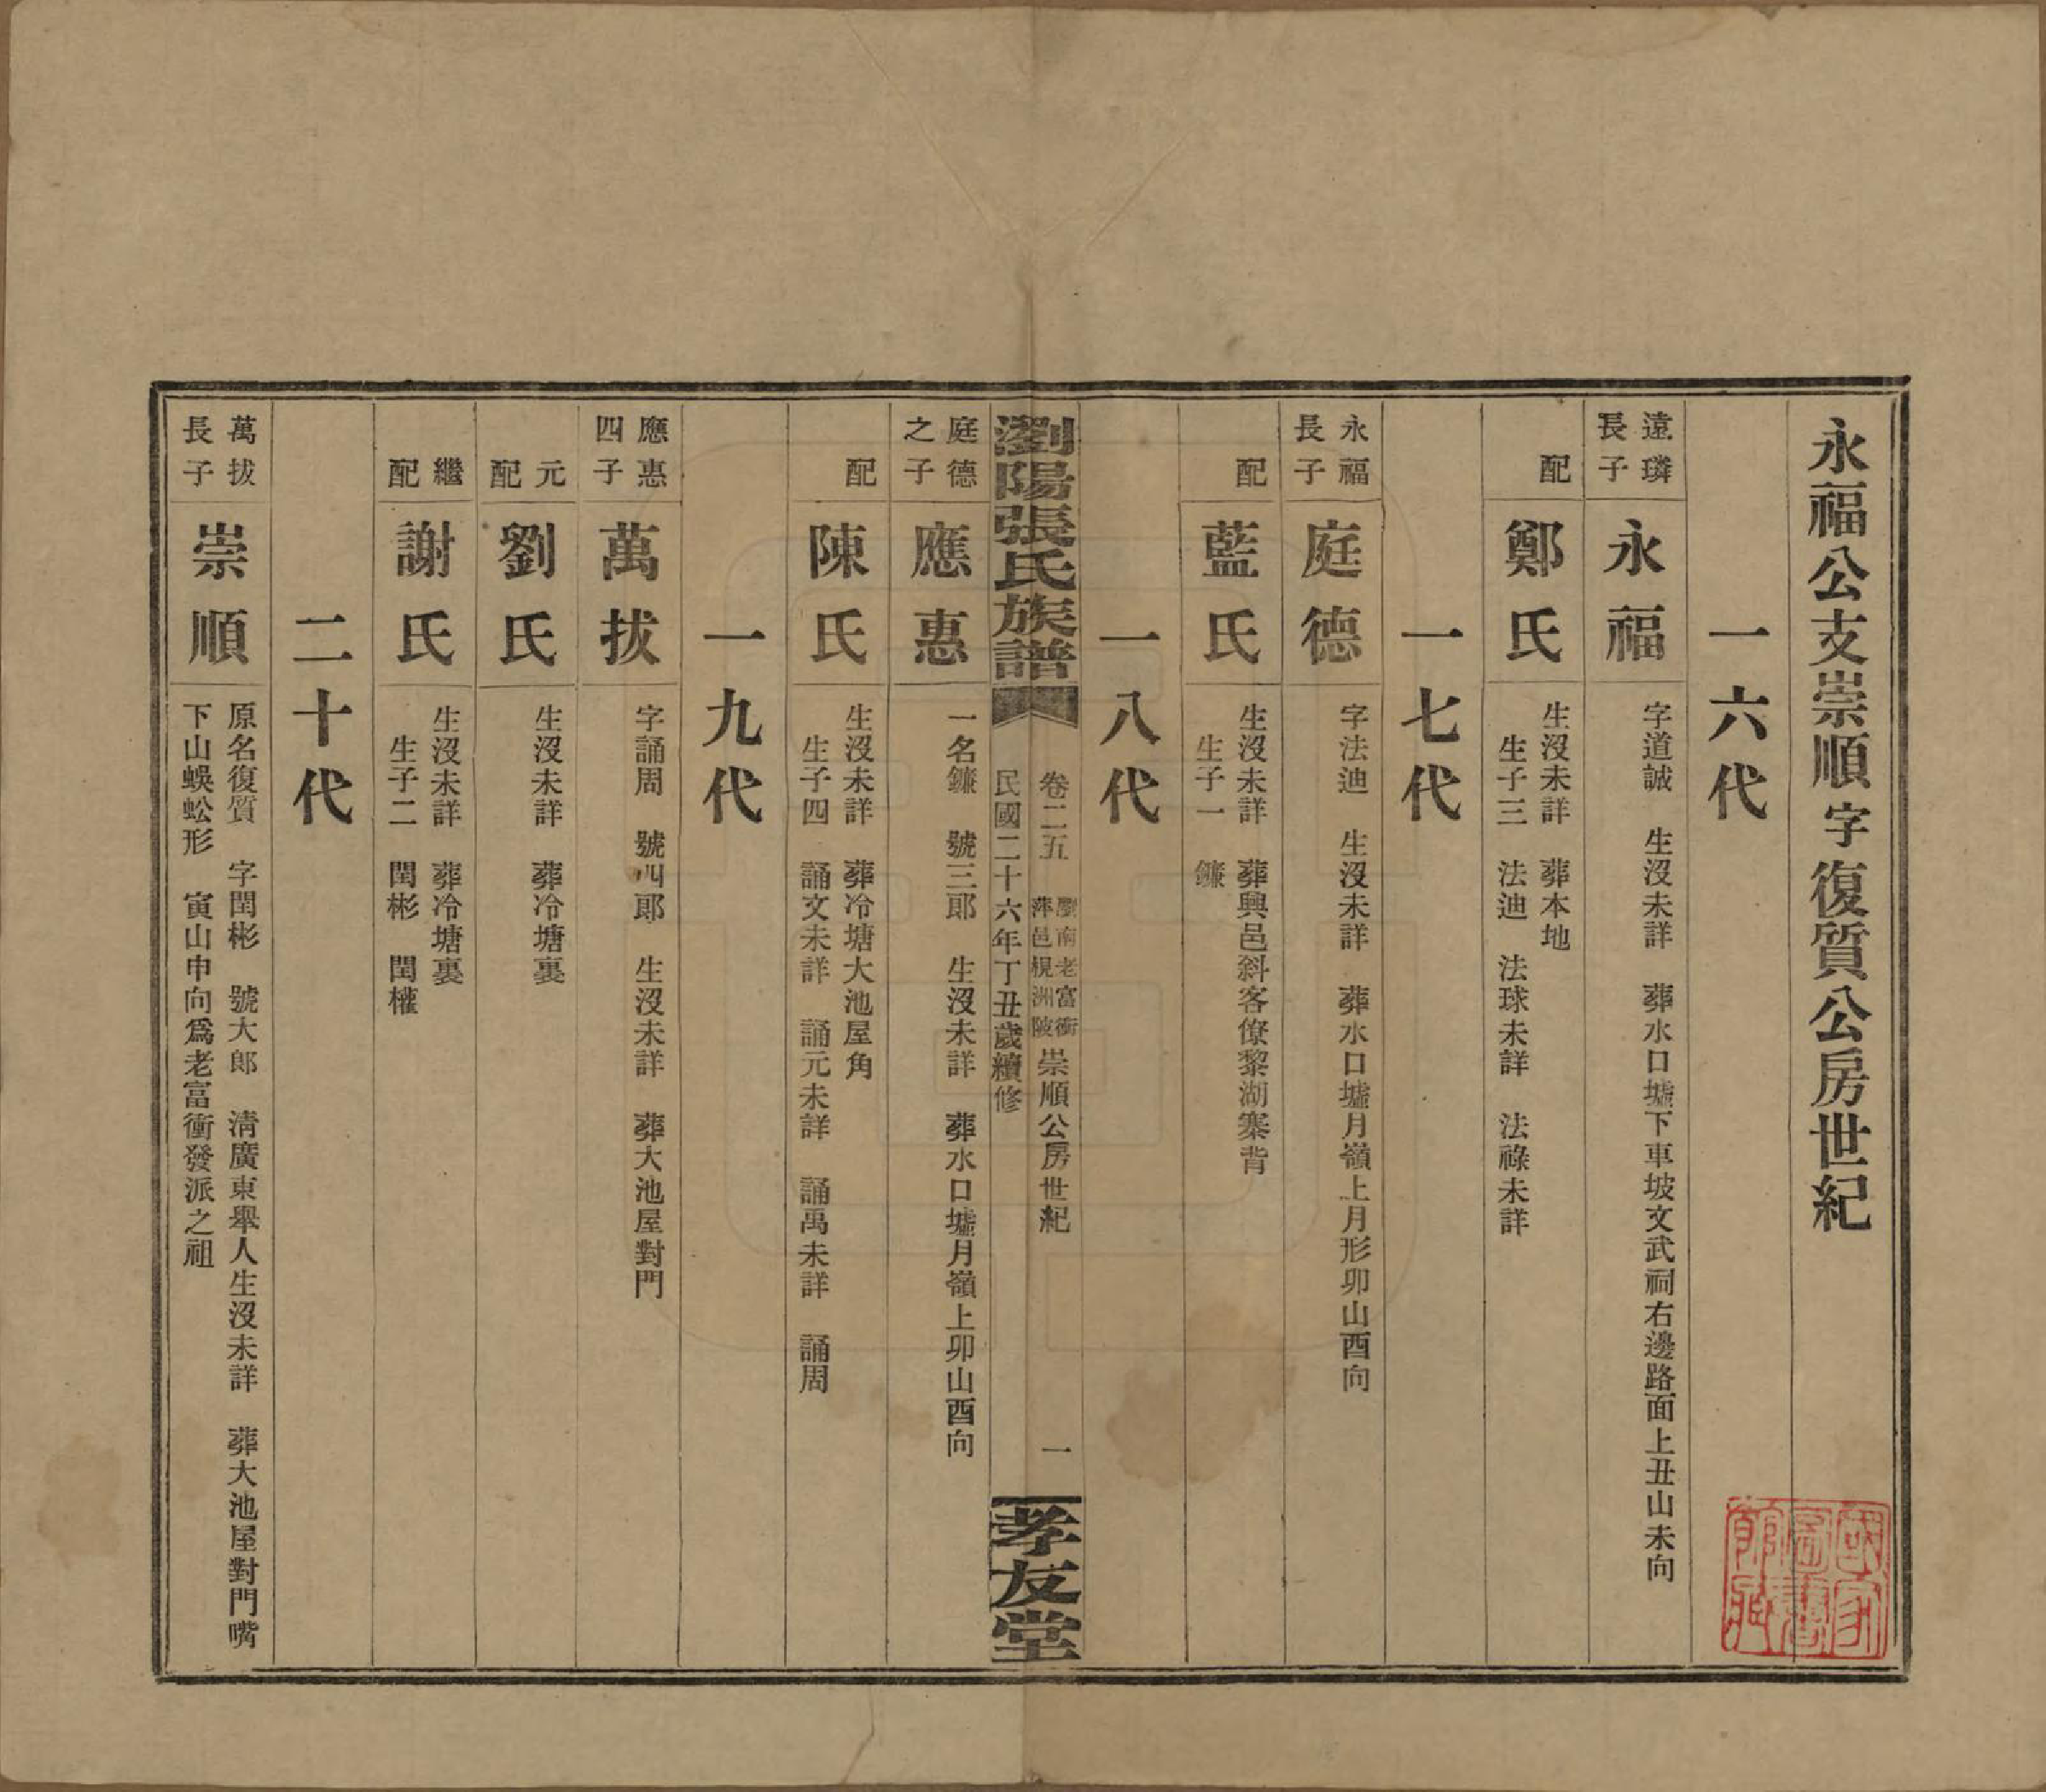 永福公支崇順字復質公房世紀
一六代
遠璘
長子
永福
字道誠　生沒未詳　葬水口墟下車坡文武祠右邊路面上丑山未向
配
鄭氏
生沒未詳　葬本地
生子三　法迪　法球未詳　法祿未詳
一七代
永福
長子
庭德
字法迪　生沒未詳　葬水口墟月嶺上月形卯山酉向
配
藍氏
生沒未詳　葬興邑斜客僚黎湖寨背
生子一　鐮
一八代
瀏陽張氏族譜
卷二五
瀏南老富衝
萍邑梘洲陂
崇順公房世紀
一
民國二十六年丁丑歲續修
孝友堂
庭德
之子
應惠
一名鐮　號三郎　生沒未詳　葬水口墟月嶺上卯山酉向
配
陳氏
生沒未詳　葬冷塘大池屋角
生子四　誦文未詳　誦元未詳　誦禹未詳　誦周
一九代
應惠
四子
萬拔
字誦周　號四郎　生沒未詳　葬大池屋對門
元
配
劉氏
生沒未詳　葬冷塘裏
繼
配
謝氏
生沒未詳　葬冷塘裏
生子二　閏彬　閏權
二十代
萬拔
長子
崇順
原名復質　字閏彬　號大郎　清廣東舉人生沒未詳　葬大池屋對門嘴
下山蜈蚣形　寅山申向為老富衝發派之祖
國家圖書館藏